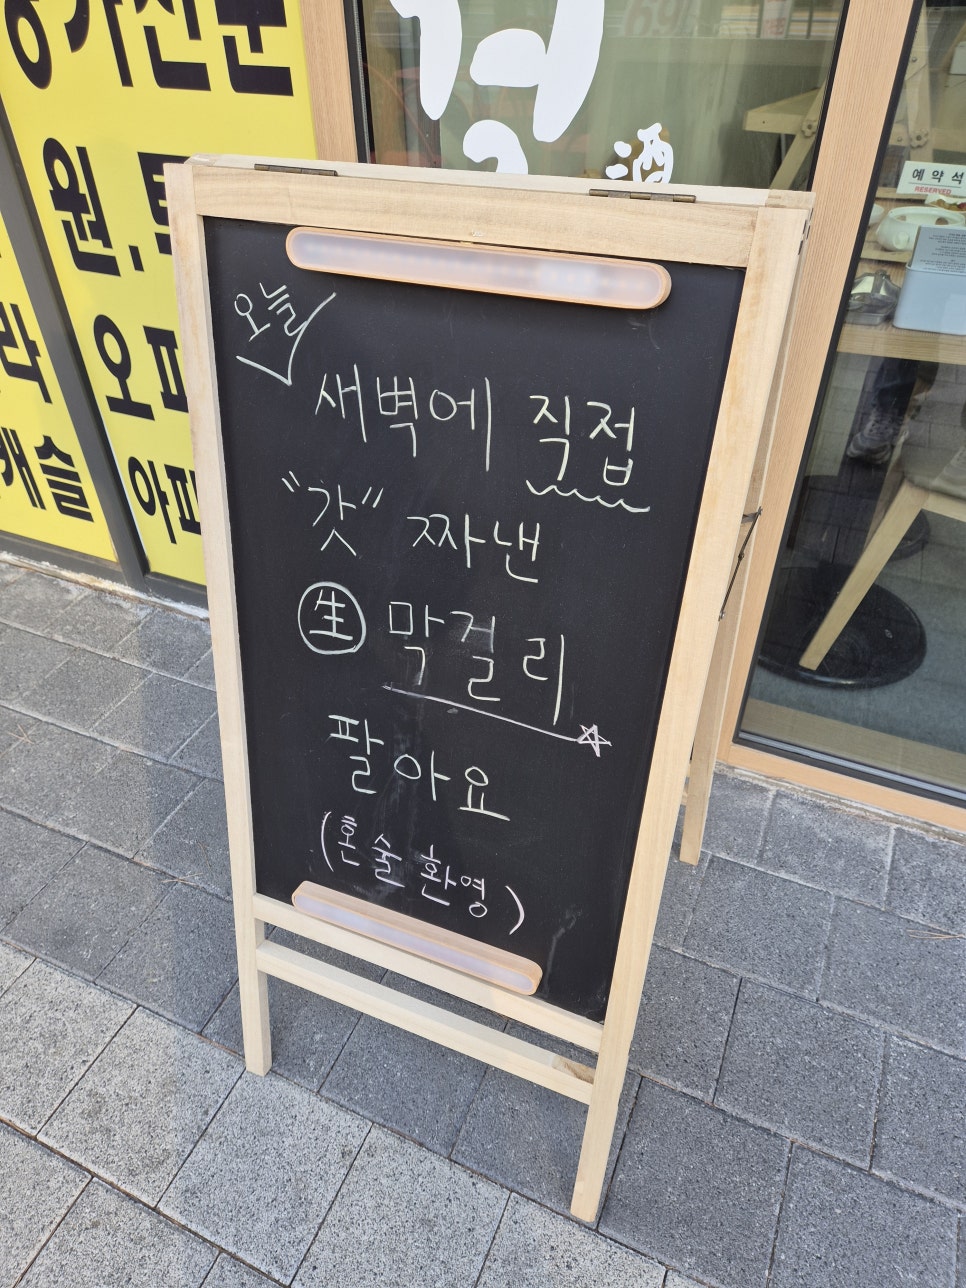 오늘
새벽에 직접
"갓" 짜낸
生 막걸리
팔아요
(혼술 환영)
酒
예약석
RESERVED
원.
오피
아파
캐슬